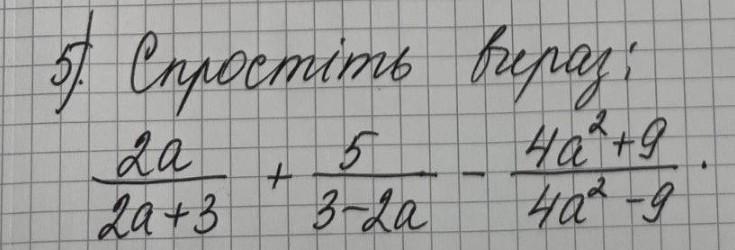 5). Спростіть вираз:
2a/(2a+3) + 5/(3-2a) - (4a²+9)/(4a²-9).